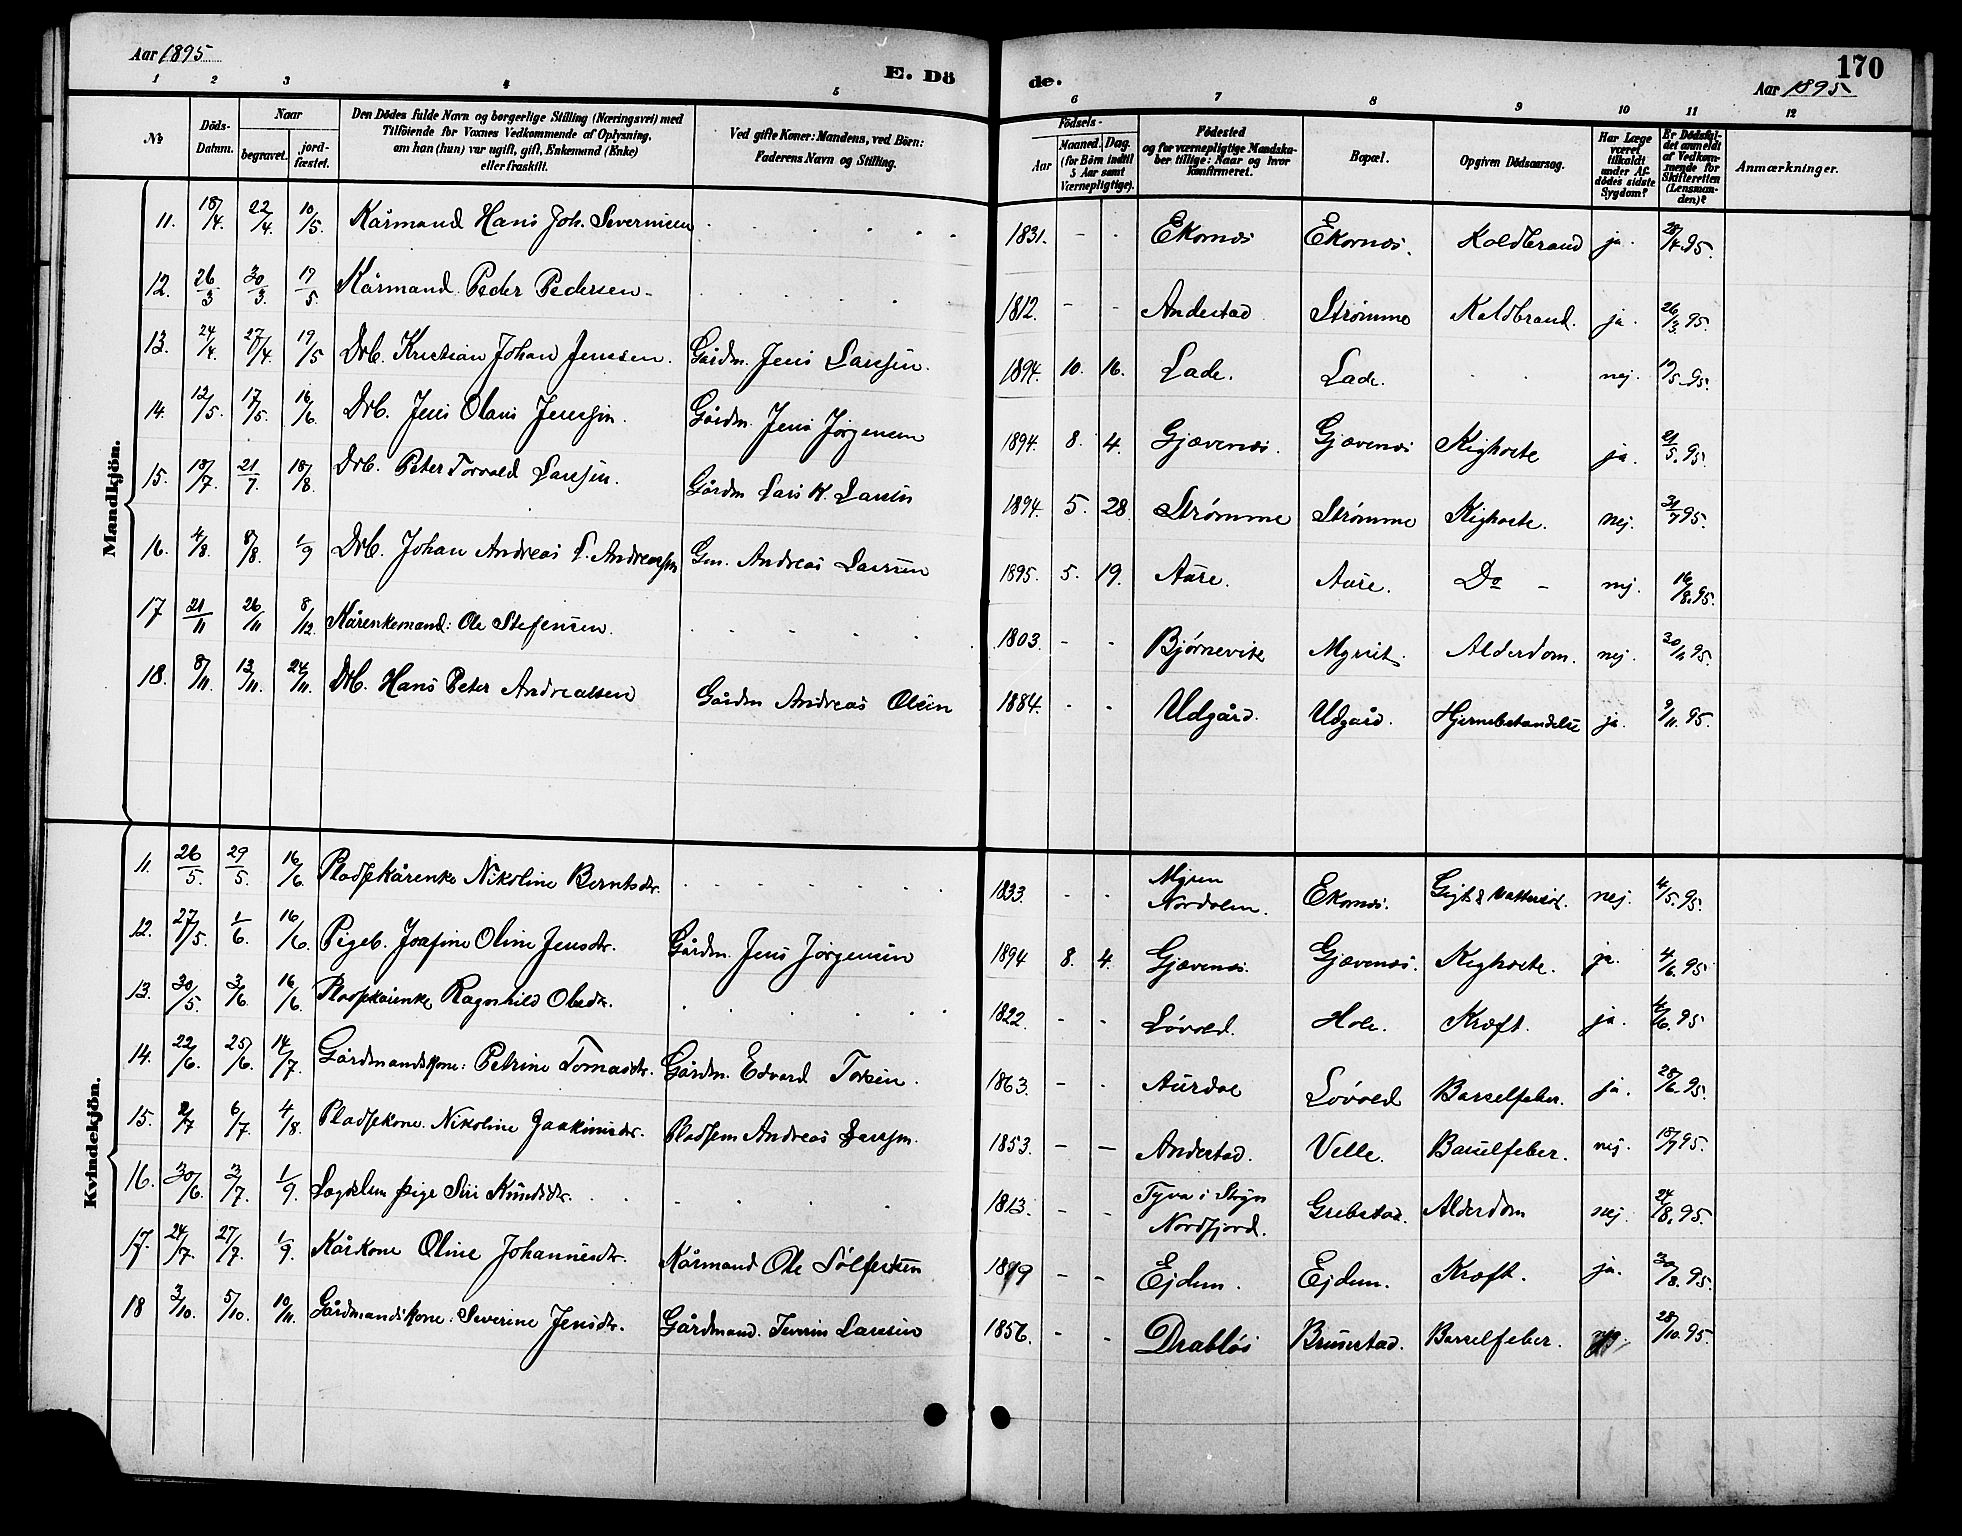 Aar 1895
E. Dö
de.
170
Aar 1895
1 2 3 4 5 6 7 8 9 10 11 12
No
Döds-Datum.
Naar
begravet.
jord-fæstet.
Den Dödes fulde Navn og borgerlige Stilling (Næringsvei) med
Tilföiende for Voxnes Vedkommende af Oplysning,
om han (hun) var ugift, gift, Enkemand (Enke)
eller fraskilt.
Ved gifte Koner: Mandens, ved Börn:
Faderens Navn og Stilling.
Födsels-
Aar
Maaned.
Dag.
(for Börn indtil
5 Aar samt
Værnepligtige).
Födested
og for værnepligtige Mandska-
ber tillige: Naar og hvor
konfirmeret.
Bopæl.
Opgiven Dödsaarsag.
Har Læge
været
tilkaldt
under Af-
dödes sidste
Sygdom?
Er Dödsfal-
det anmeldt
af Vedkom-
mende for
Skifteretten
(Lensman-
den)?
Anmærkninger.
Mandkjön.
11. 18/4. 22/4. 10/5. Kårmand Hans Joh. Severinsen 1831. - - Ekornæs Ekornæs. Koldbrand ja. 28/4.95.
12. 26/3 30/3. 19/5. Kårmand Peder Pedersen 1812. - - Andestad Strømme Koldbrand. ja. 26/3.95.
13. 24/4. 27/4. 19/5 Drb. Kristian Johan Jenssen. Gårdm. Jens Larssen. 1894. 10. 16. Lade. Lade. nej. 19/5.95.
14. 12/5. 17/5. 16/6 Drb. Jens Olaus Jenssen. Gårdm. Jens Jørgensen 1894. 8. 4. Gjævenæs. Gjævenæs Kighoste ja. 21/5.95.
15. 18/7. 21/7. 18/8. Drb. Peter Torvald Larssen. Gårdm Lars K. Larsen 1894. 5. 28. Strømme Strømme Kighoste. nej. 31/7 95.
16. 4/8. 8/8. 1/9 Drb. Johan Andreas L. Andreassen Gm. Andreas Larssen 1895. 5. 19. Aure. Aure. Do - nej. 16/8.95.
17 21/11 26/11 8/12. Kårenkemand: Ole Steffensen. 1803. - - Bjørnevik Myrset. Alderdom. nej. 30/11 95.
18. 8/11. 13/11. 24/11. Drb. Hans Peter Andreassen Gårdm Andreas Olsen 1884. - - Udgård. Udgård. Hjernebetændelse ja. 9/11.95.
Kvindekjön.
11. 26/5. 29/5. 16/6. Pladsekårenke Nikoline Berntsdr. 1833. - - Myren Nordalen. Ekornæs. Gigt & Vattersot. nej. 4/5.95.
12. 27/5. 1/6. 16/6. Pigeb. Josefine Oline Jensdr. Gårdm. Jens Jørgensen 1894 8. 4. Gjævenæs. Gjævenæs. Kighoste. ja. 4/6.95
13. 30/5 3/6. 16/6. Pladsekårenke Ragnhild Olsdr. 1822. - - Løvold. Hole. Kræft. ja. 4/6.95
14. 22/6. 25/6. 14/7. Gårdmandskone: Petrine Tomasdr. Gårdm. Edvard Tolsen. 1863. - - Aurdal Løvold Barselfeber. ja. 28/6.95.
15. 2/7 6/7. 4/8 Pladsekone. Nikoline Joakimsdr. Pladsem Andreas Larssen. 1853. - - Andestad. Velle. Barselfeber. nej. 18/7 95.
16. 30/6 3/7. 1/9. Lægdslem pige Siri Knudsdr. 1813. - - Tyva i Stryn Nordfjord. Grebstad. Alderdom nej. 24/8.95.
17. 24/7. 27/7. 1/9. Kårkone Oline Johannesdr. Kårmand Ole - - Ejdem. Ejdem. Kræft. ja. 30/8.95.
18 3/10. 5/10. 10/11. Gårdmandskone: Severine Jensdr. Gårdmand. Iverin Larssen 1856. - - Drabløs Brunstad. Barselfeber. 28/10.95.